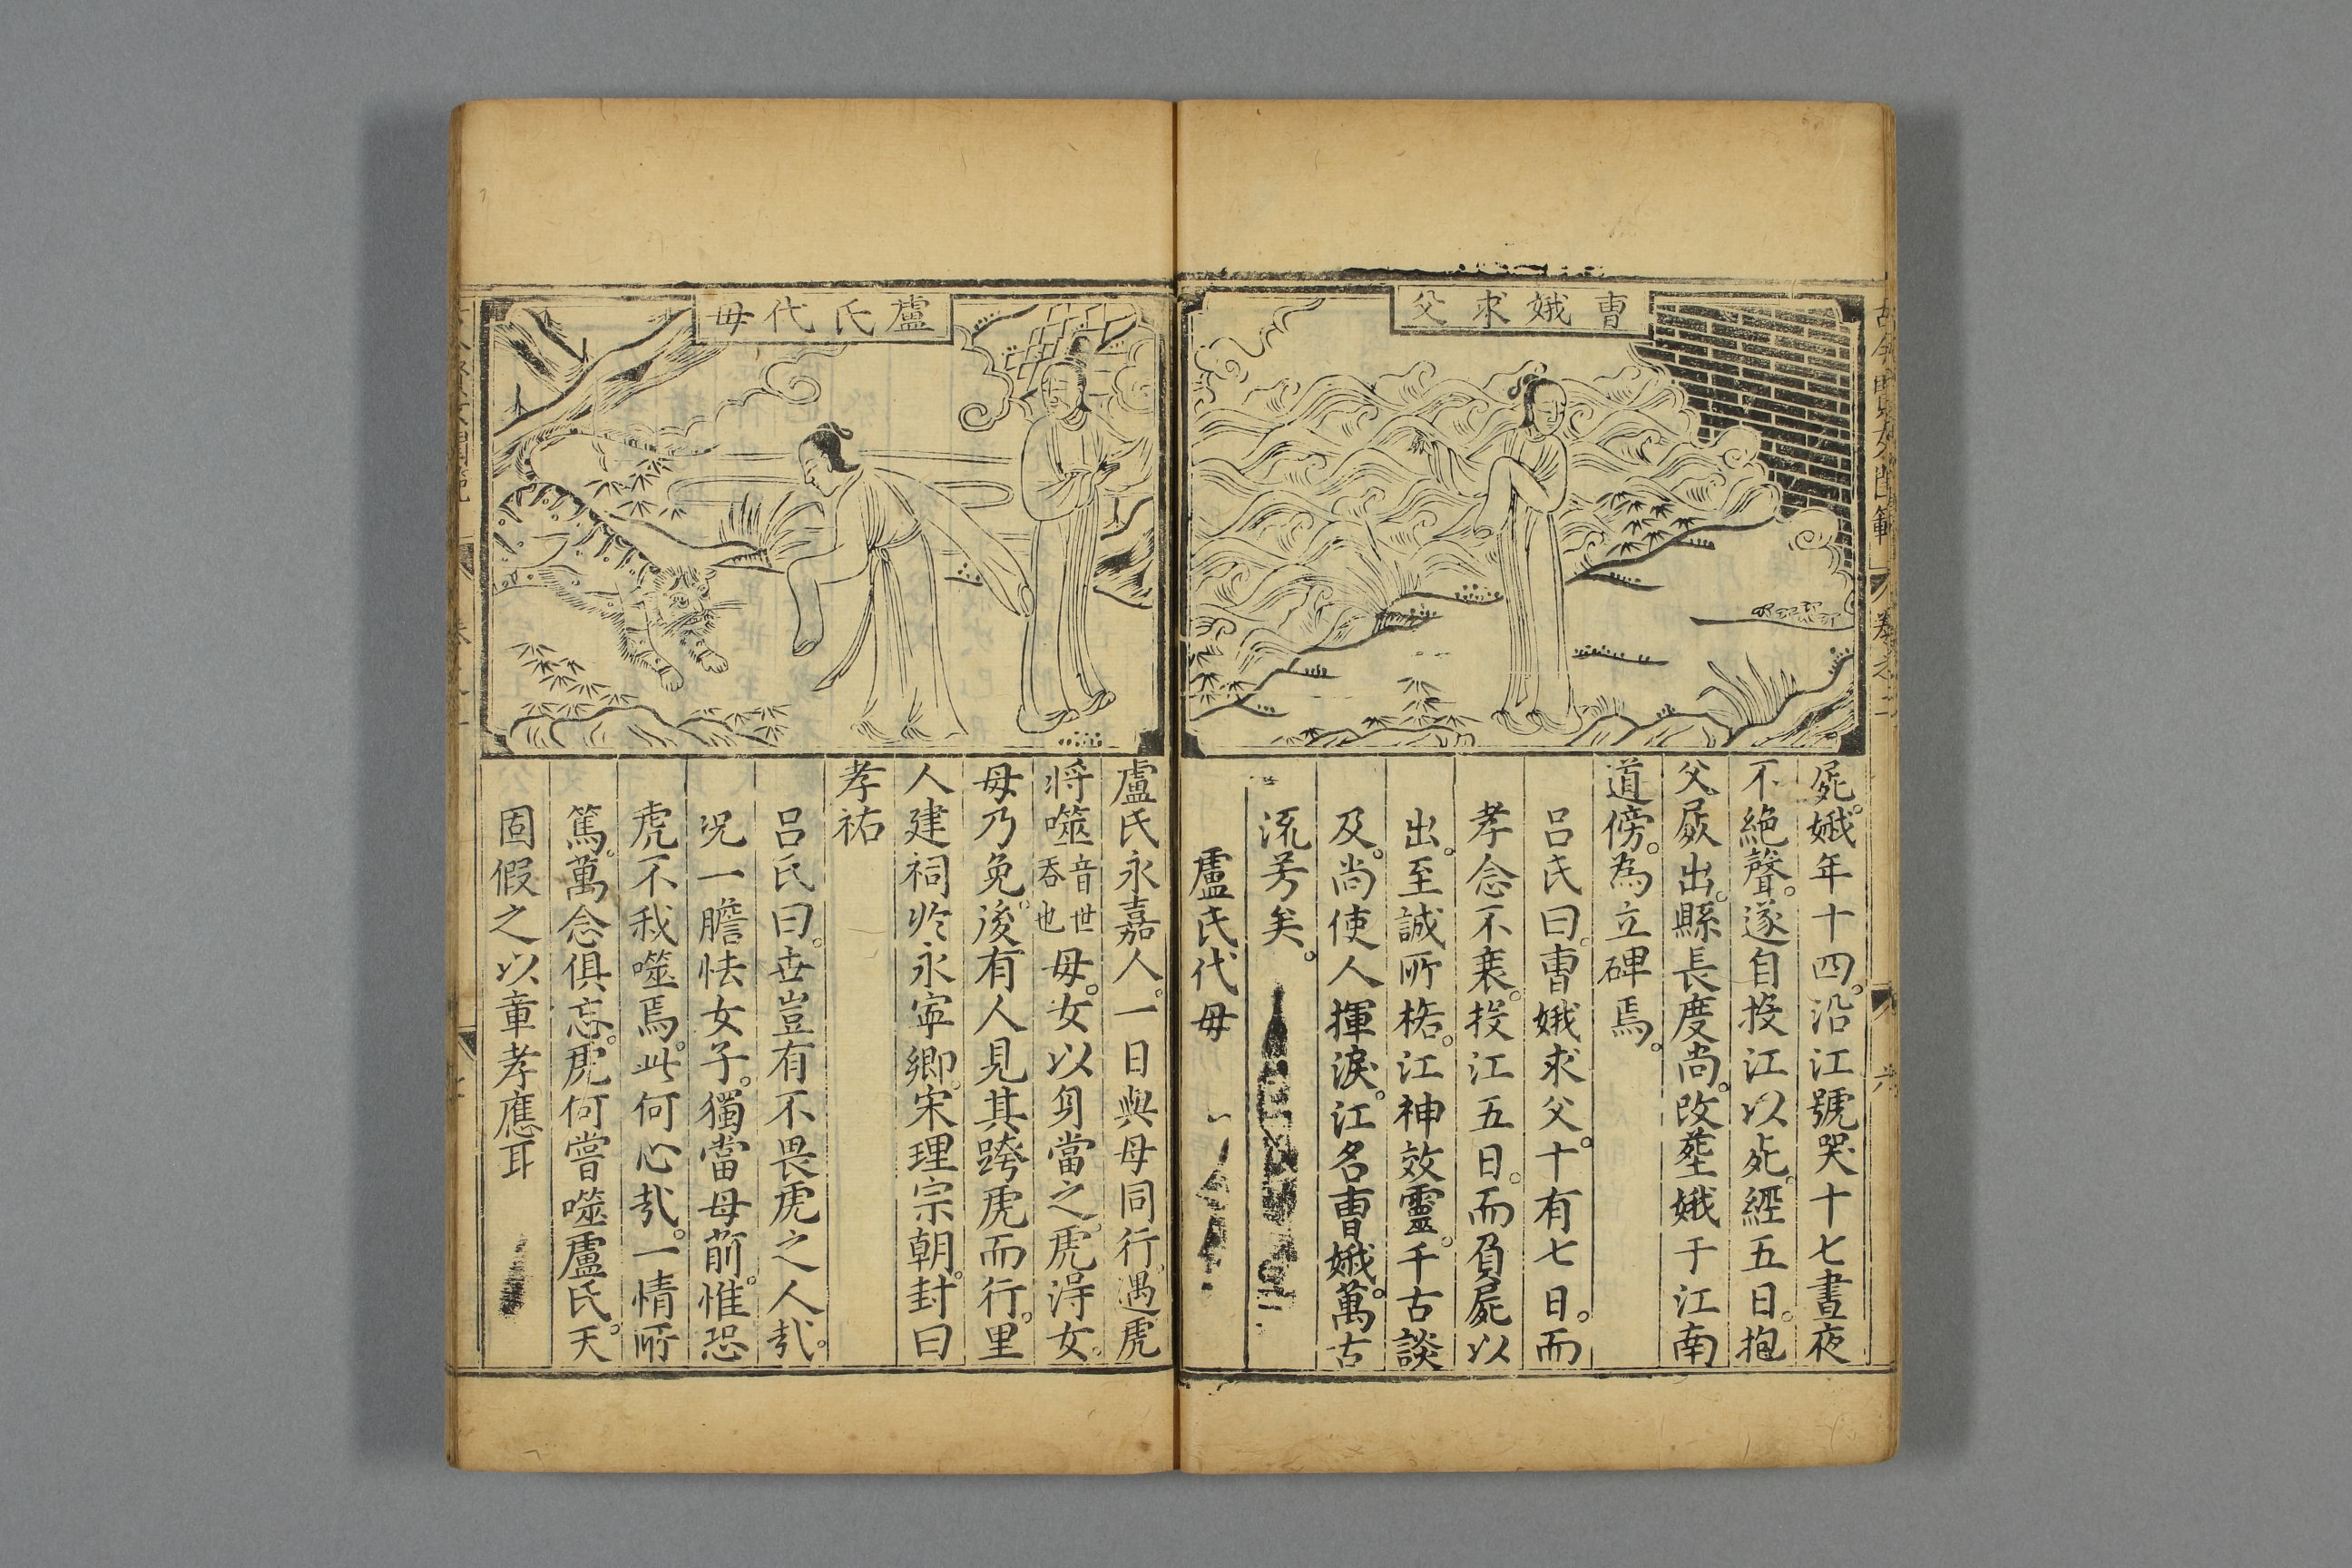 曹娥求父
屍。娥年十四。沿江號哭十七晝夜
不絕聲。遂自投江以死。經五日。抱
父屍出。縣長度尚。改塟娥于江南
道傍。為立碑焉。
呂氏曰。曹娥求父。十有七日。而
孝念不衰。投江五日。而負屍以
出。至誠所格。江神效靈。千古談
及。尚使人揮淚。江名曹娥。萬古
流芳矣。
盧氏代母
盧氏代母
盧氏永嘉人。一日與母同行。遇虎
將噬音世吞也母。女以身當之。虎淂女。
母乃免。後有人見其跨虎而行。里
人建祠扵永寧鄉。宋理宗朝。封曰
孝祐
呂氏曰。世豈有不畏虎之人哉。
況一膽怯女子。獨當母前。惟恐
虎不我噬焉。此何心哉。一情所
篤。萬念俱忘。虎何嘗噬盧氏。天
固假之以章孝應耳
古今列女閨範 卷之二 六